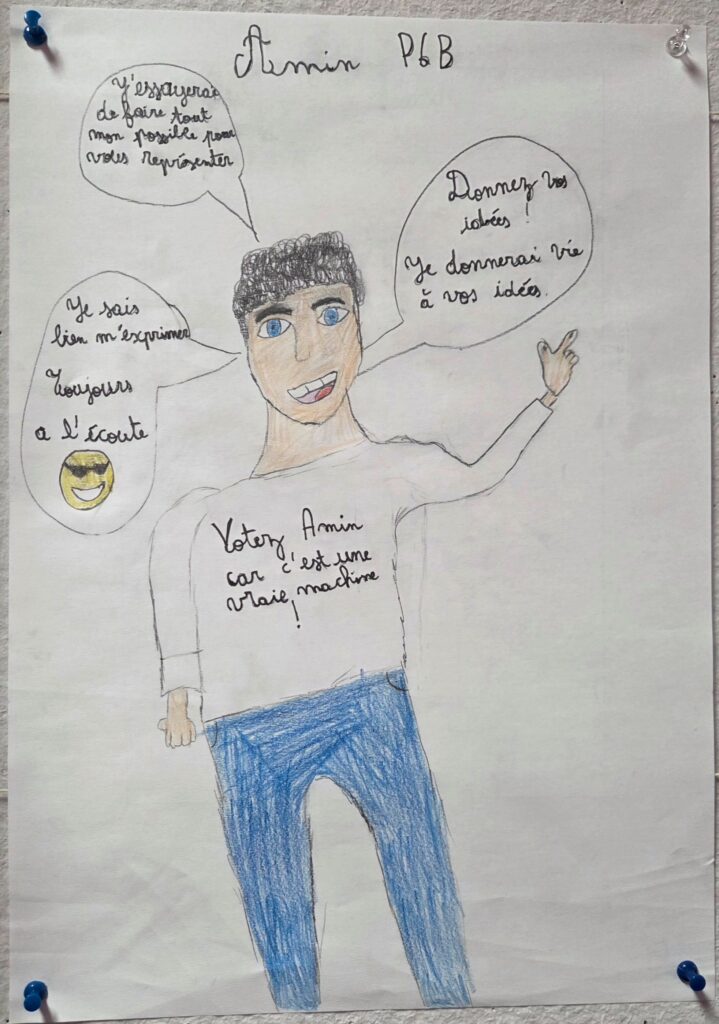 Amin P6B
J'essayerai
de faire tout
mon possible pour
vous représenter
Donnez vos
idées !
Je donnerai vie
à vos idées.
Je sais
bien m'exprimer
Toujours
a l'écoute
Votez Amin
car c'est une
vraie machine
!